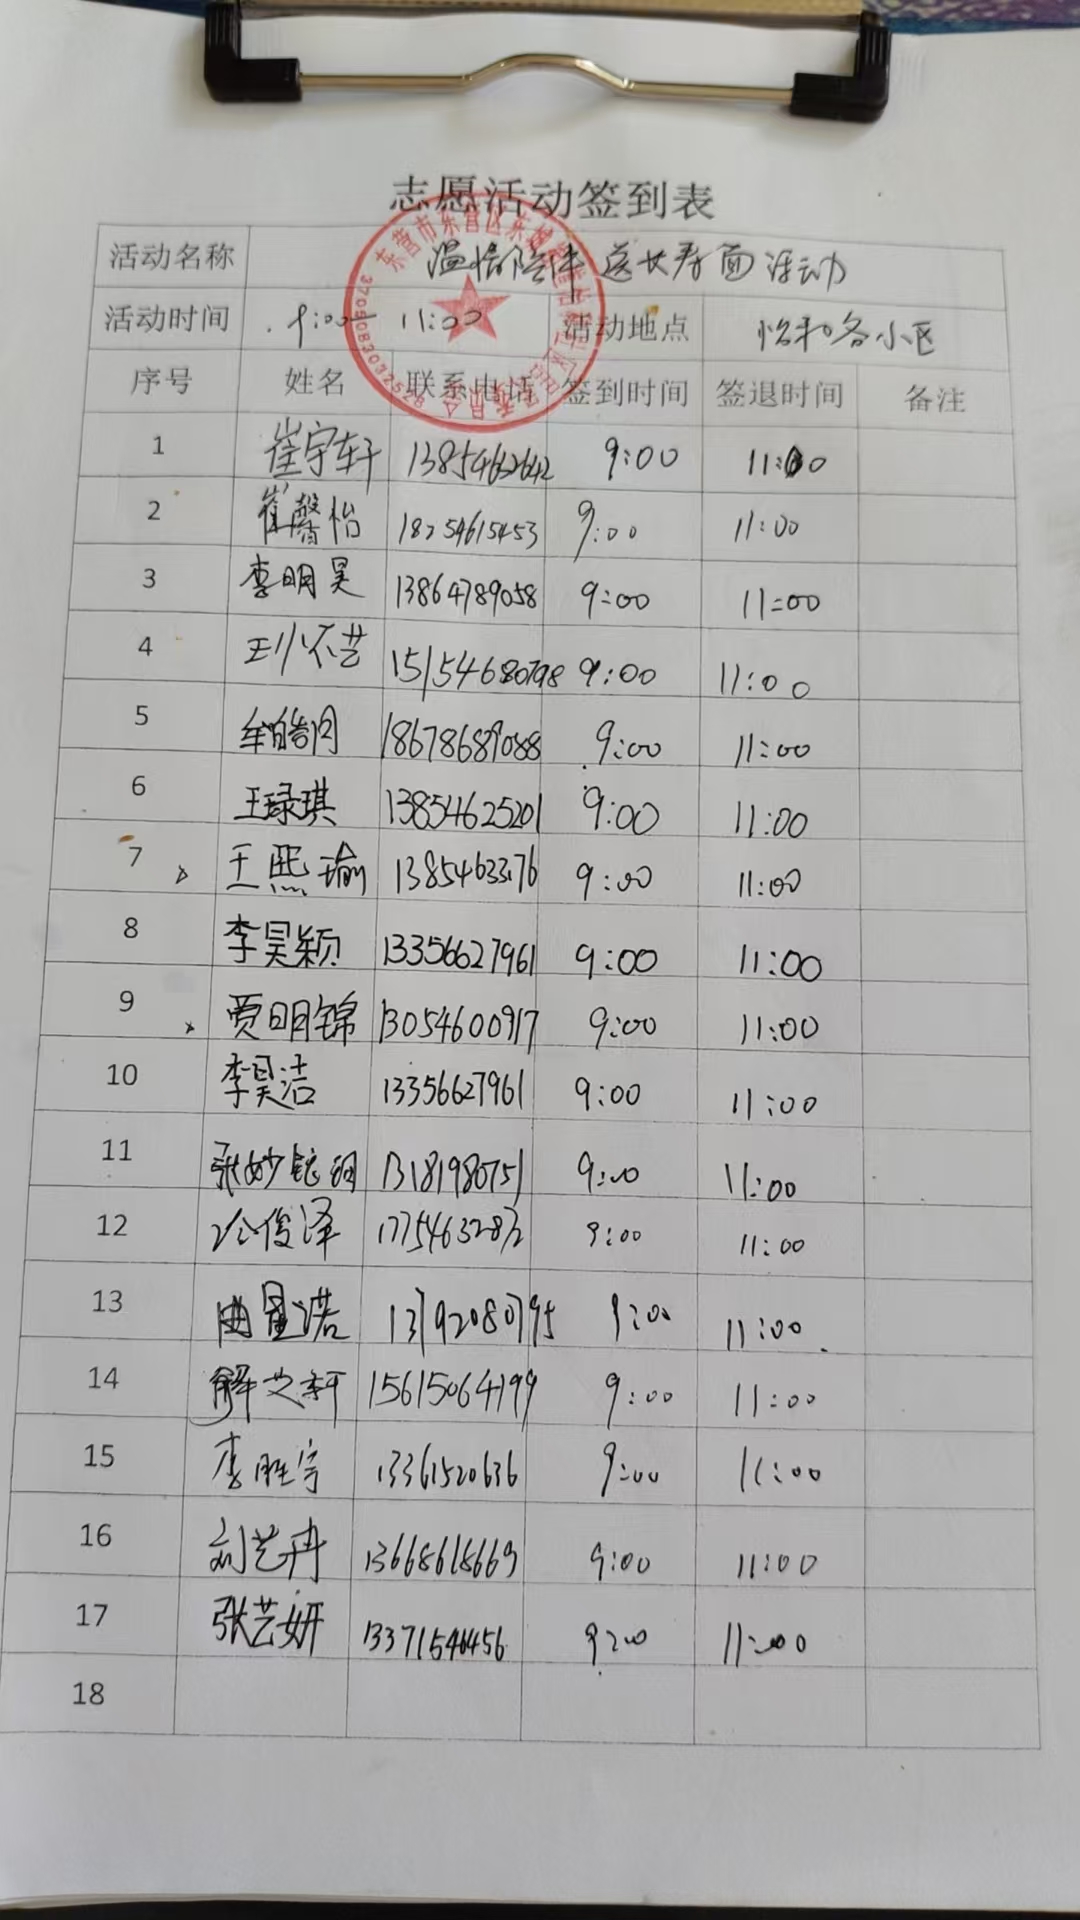 志愿活动签到表
活动名称 温情陪伴 送长寿面活动
活动时间 9:00 11:00 活动地点 怡和各小区
序号 姓名 联系电话 签到时间 签退时间 备注
1 崔宇轩 13854662642 9:00 11:00
2 崔馨怡 18254615453 9:00 11:00
3 李明昊 13864789058 9:00 11:00
4 15154680798 9:00 11:00
5 18678689088 9:00 11:00
6 王琭琪 13854625201 9:00 11:00
7 王熙瑜 1385463376 9:00 11:00
8 李昊颖 13356627961 9:00 11:00
9 贾明锦 13054600917 9:00 11:00
10 李昊洁 13356627961 9:00 11:00
11 13181980751 9:00 11:00
12 俊泽 17754632872 9:00 11:00
13 曲星诺 13792080795 9:00 11:00
14 解艾轩 15615064199 9:00 11:00
15 李胜宇 13361520636 9:00 11:00
16 刘艺冉 13668618669 9:00 11:00
17 张艺妍 13371546456 9:00 11:00
18